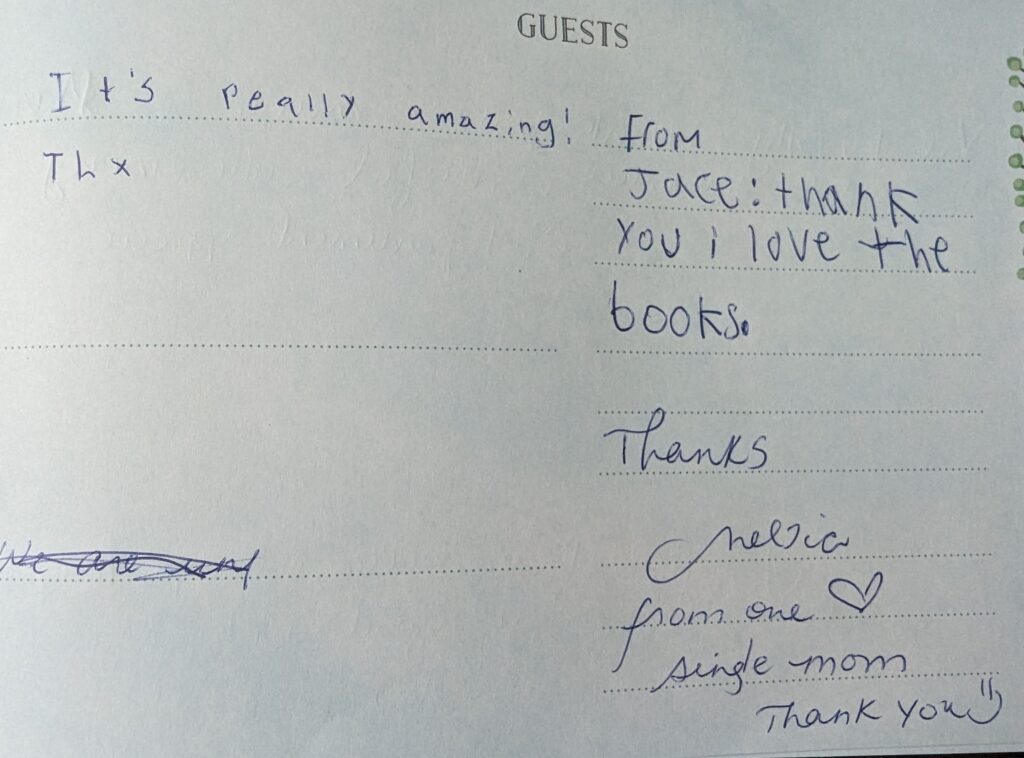 GUESTS
It's really amazing!
Thx
We are
From
Jace: thank
you i love the
books.
Thanks
from one ♡
single mom
Thank you